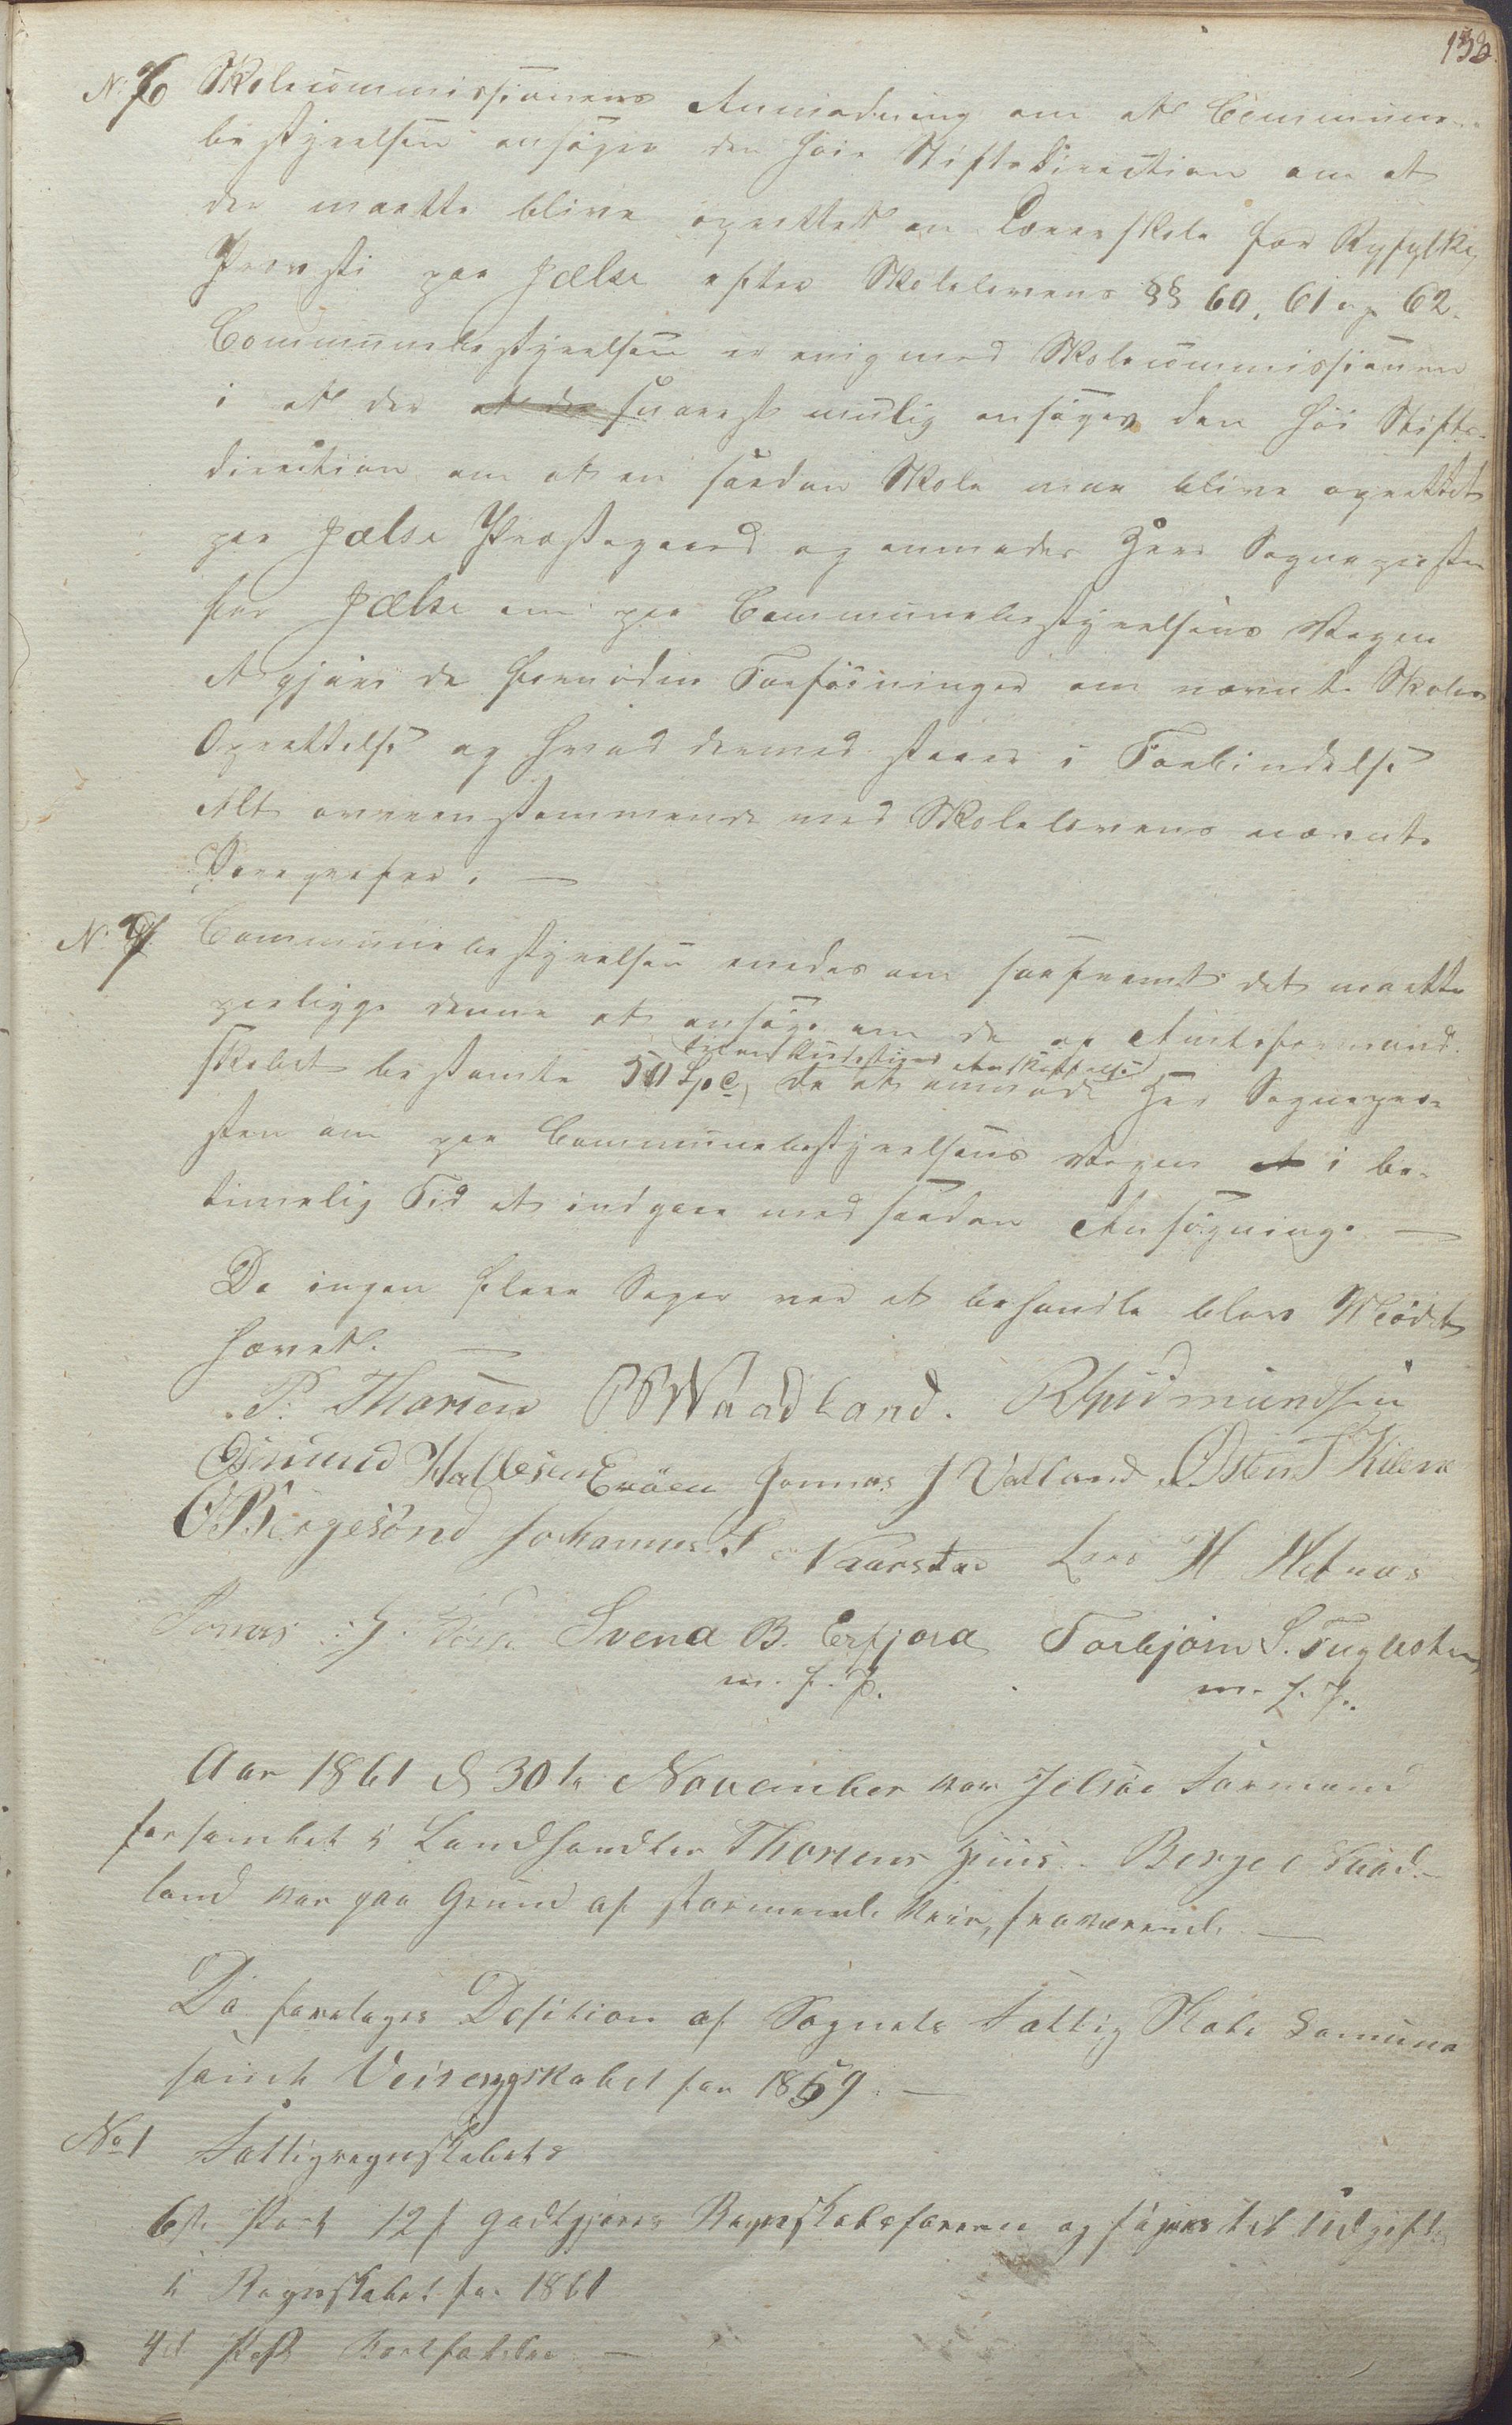 132.
N. 6 Skolecommissionens Anmodning om at Commune-
bestyrelsen ansøger den høie Stiftsdirection om at
der maatte blive oprettet en Lærerskole for Ryfylke
Provsti paa Jælse efter Skolelovens §§ 60, 61 og 62.
Communebestyrelsen er enig med Skolecommissionen
i at der at der snarest mulig ansøges den høi Stifts-
direction om at en saadan Skole maa blive oprettet
paa Jælse Præstegaard og anmodes Herr Sognepresten
for Jælse om paa Communebestyrelsens Vegne
at gjøre de fornødne Forføininger om nævnte Skoles
Oprettelse og hvad dermed staaer i Forbindelse
Alt overeenstemmende med Skolelovens nævnte
Paragrafer. —
N. 7 Communebestyrelsen enedes om saafremt det maatte
paaligge denne at ansøge om de af Amtsformand-
skabet bestemte 50 Spd, da at anmode Hr Sognepre-
sten om paa Communebestyrelsens Vegne at i be-
timelig Tid at indgaae med saadan Ansøgning. —
Da ingen flere Sager var at behandle blev Mødet
hævet. —
P. Thorsen Waadland. R Gudmundsen
Osmund Halvesen Erøen Jonnas J Valland Østen T Kilene
O Børgesønd Johannes S Naarstae Lars H Hetnæs
Jonas J. Svend B. Erfjora Torbjørn S. Fuglesten
m. f. P. m. f. P.
Aar 1861 d 30te November var Jelsøe Formand
forsamlet i Landhandler Thorsens Huus. Berge Vaad-
land var paa Grund af stormende Veir, fraværende —
Da foretages Desition af Sognets Fattig Skole Comune
samt Veiregnskabet for 1859. —
No 1 Fattigregnskabets
6te Post 12 ſ godtgjøres Regnskabsføreren og føres til Udgift
i Regnskabet for 1861
4d Post bortfalder —